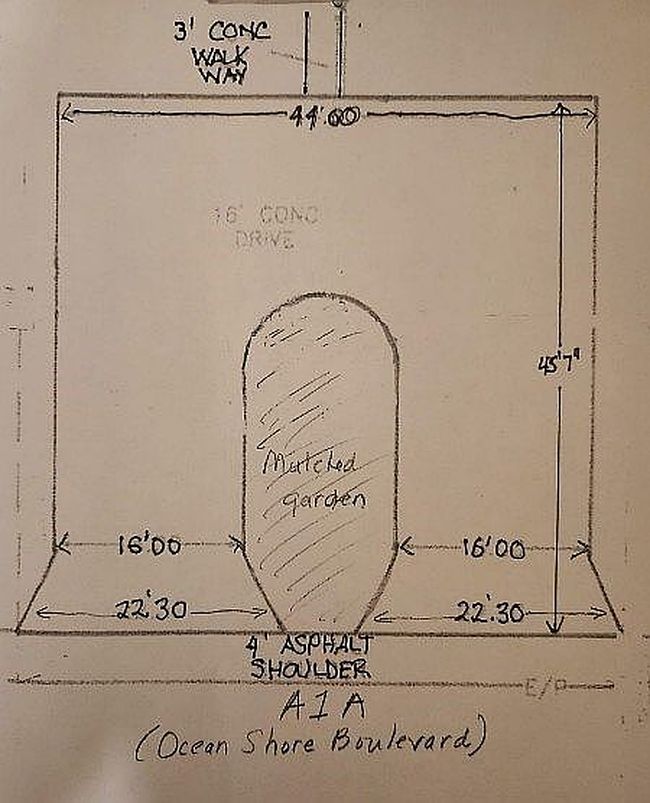 3' CONC
WALK
WAY
44'00
16' CONC
DRIVE
45'7"
Mulched
garden
16'00
16'00
22'30
22'30
4' ASPHALT
SHOULDER
E/P
A1A
(Ocean Shore Boulevard)